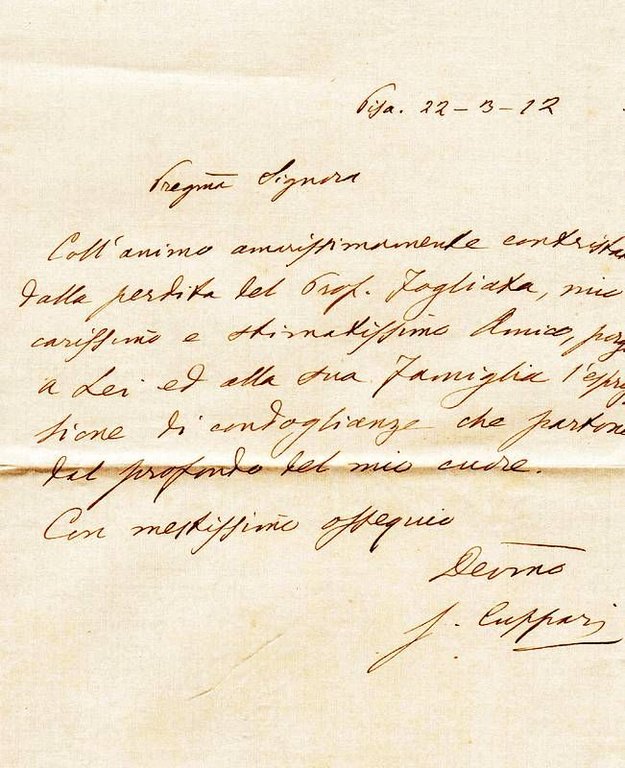 Pisa. 22-3-12
Pregma Signora
Coll'animo amarissimamente contrista
dalla perdita del Prof. Fogliata, mio
carissimo e stimatissimo Amico, porg
a Lei ed alla sua Famiglia l'espres
sione di condoglianze che partono
dal profondo del mio cuore.
Con mestissimo ossequio
Devmo
Cuppari